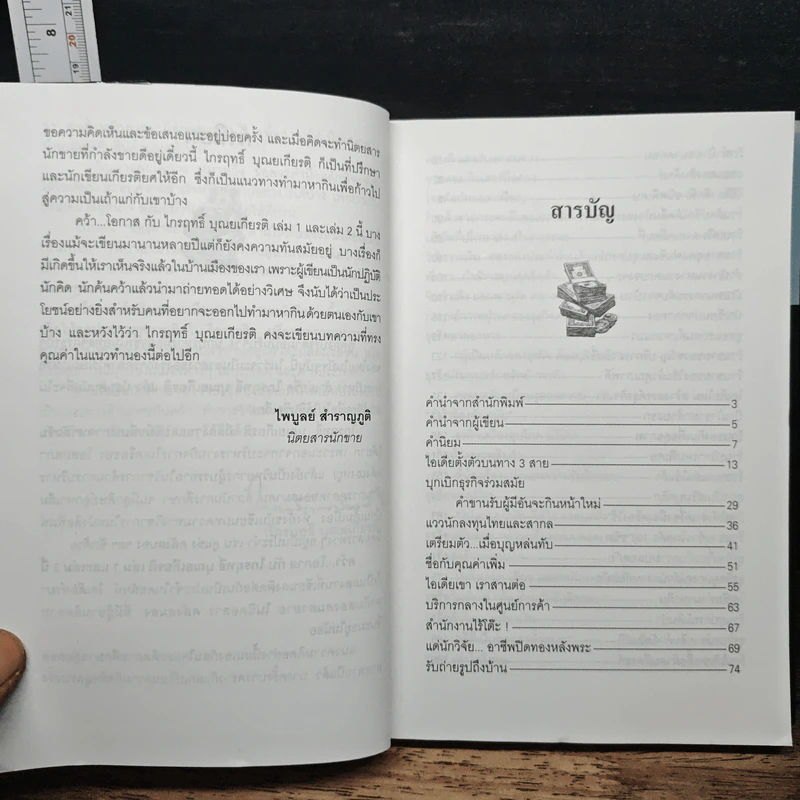 8
21
20
19
ขอความคิดเห็นและข้อเสนอแนะอยู่บ่อยครั้ง และเมื่อคิดจะทำนิตยสาร
นักขายที่กำลังขายดีอยู่เดี๋ยวนี้ ไกรฤทธิ์ บุณยเกียรติ ก็เป็นที่ปรึกษา
และนักเขียนเกียรติยศให้อีก ซึ่งก็เป็นแนวทางทำมาหากินเพื่อก้าวไป
สู่ความเป็นเถ้าแก่กับเขาบ้าง
คว้า...โอกาส กับ ไกรฤทธิ์ บุณยเกียรติ เล่ม 1 และเล่ม 2 นี้ บาง
เรื่องแม้จะเขียนมานานหลายปีแต่ก็ยังคงความทันสมัยอยู่ บางเรื่องก็
มีเกิดขึ้นให้เราเห็นจริงแล้วในบ้านเมืองของเรา เพราะผู้เขียนเป็นนักปฏิบัติ
นักคิด นักค้นคว้าแล้วนำมาถ่ายทอดได้อย่างวิเศษ จึงนับได้ว่าเป็นประ
โยชน์อย่างยิ่งสำหรับคนที่อยากจะออกไปทำมาหากินด้วยตนเองกับเขา
บ้าง และหวังไว้ว่า ไกรฤทธิ์ บุณยเกียรติ คงจะเขียนบทความที่ทรง
คุณค่าในแนวทำนองนี้ต่อไปอีก
ไพบูลย์ สำราญภูติ
นิตยสารนักขาย
สารบัญ
คำนำจากสำนักพิมพ์ 3
คำนำจากผู้เขียน 5
คำนิยม 7
ไอเดียตั้งตัวบนทาง 3 สาย 13
บุกเบิกธุรกิจร่วมสมัย
คำขานรับผู้มีอันจะกินหน้าใหม่ 29
แววนักลงทุนไทยและสากล 36
เตรียมตัว...เมื่อบุญหล่นทับ 41
ชื่อกับคุณค่าเพิ่ม 51
ไอเดียเขา เราสานต่อ 55
บริการกลางในศูนย์การค้า 63
สำนักงานไร้โต๊ะ ! 67
แด่นักวิจัย... อาชีพปิดทองหลังพระ 69
รับถ่ายรูปถึงบ้าน 74